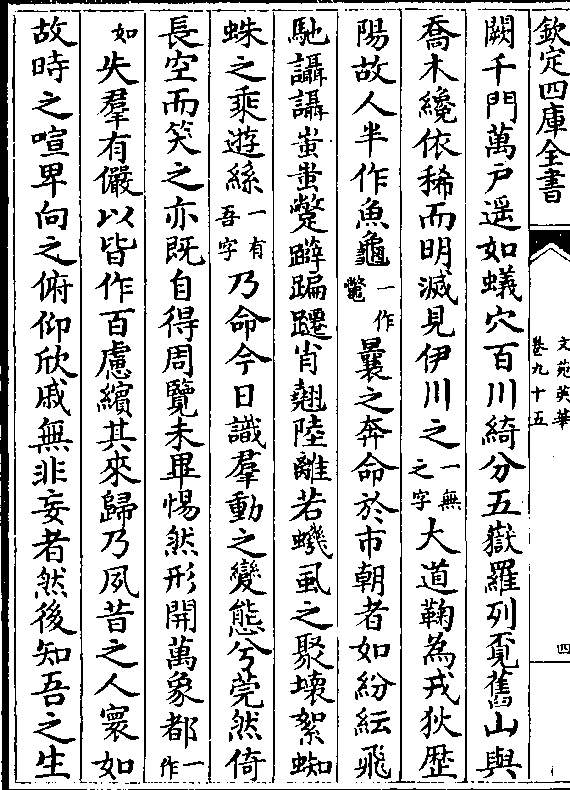 欽定四庫全書
文苑英華
卷九十五
四
闕千門萬戸遥如蟻穴百川綺分五嶽羅列覔舊山與
喬木纔依稀而明滅見伊川之一無之字大道鞠為戎狄歴
陽故人半作魚龜一作鼈曩之奔命於市朝者如紛紜飛
馳讘讘蚩蚩蹩躃蹁躚肖翹陸離若蟣虱之聚壊絮蜘
蛛之乘遊絲一有吾字乃命今日識羣動之變態兮莞然倚
長空而笑之亦既自得周覽未畢惕然形開萬象都一作
如失羣有儼以皆作百慮繽其來歸乃夙昔之人寰如
故時之喧卑向之俯仰欣戚無非妄者然後知吾之生